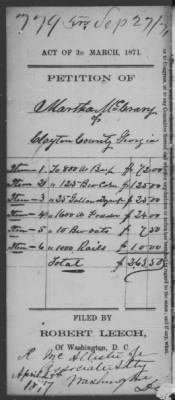 779 Sep 27/71
ACT OF 3D MARCH, 1871.
PETITION OF
Martha McCrary
of
Clayton County Georgia
Item - 1. To 800 lb Beef $ 72.00
Item - 2 " 125 Bu Corn $ 125.00
Item - 3 " 25 Gallon Syrup $ 25.00
Item - 4 " 1600 lb Fodder $ 24.00
Item - 5 " 10 Bu oats $ 7.50
Item - 6 " 1000 Rails $ 10.00
Total $ 263.50
FILED BY
ROBERT LEECH,
Of Washington, D. C.
R McAllister Jr
Associate Atty
April
1877 Washington
DC